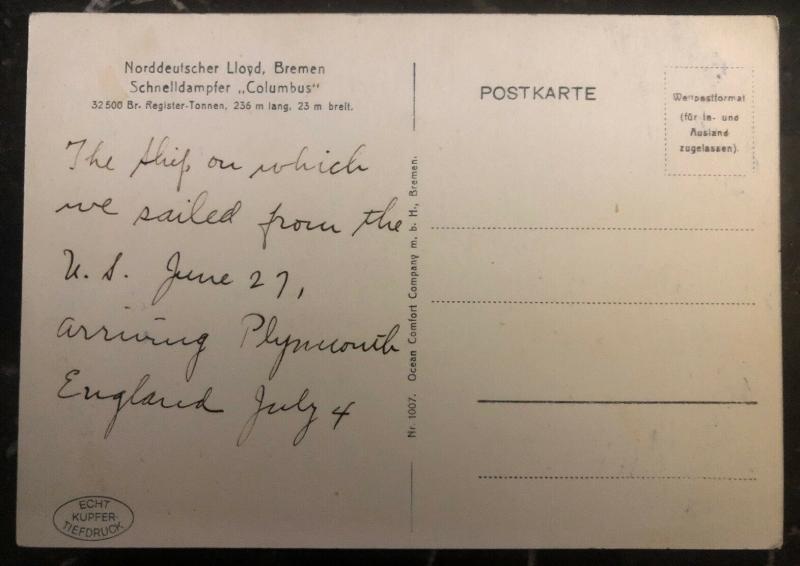 Norddeutscher Lloyd, Bremen
Schnelldampfer „Columbus“
32500 Br. Register-Tonnen, 236 m lang, 23 m breit.
The ship on which
we sailed from the
U. S. June 27,
arriving Plymouth
England July 4
ECHT
KUPFER-
TIEFDRUCK
Nr. 1007. Ocean Comfort Company m. b. H., Bremen.
POSTKARTE
Weltpostformat
(für In- und
Ausland
zugelassen).